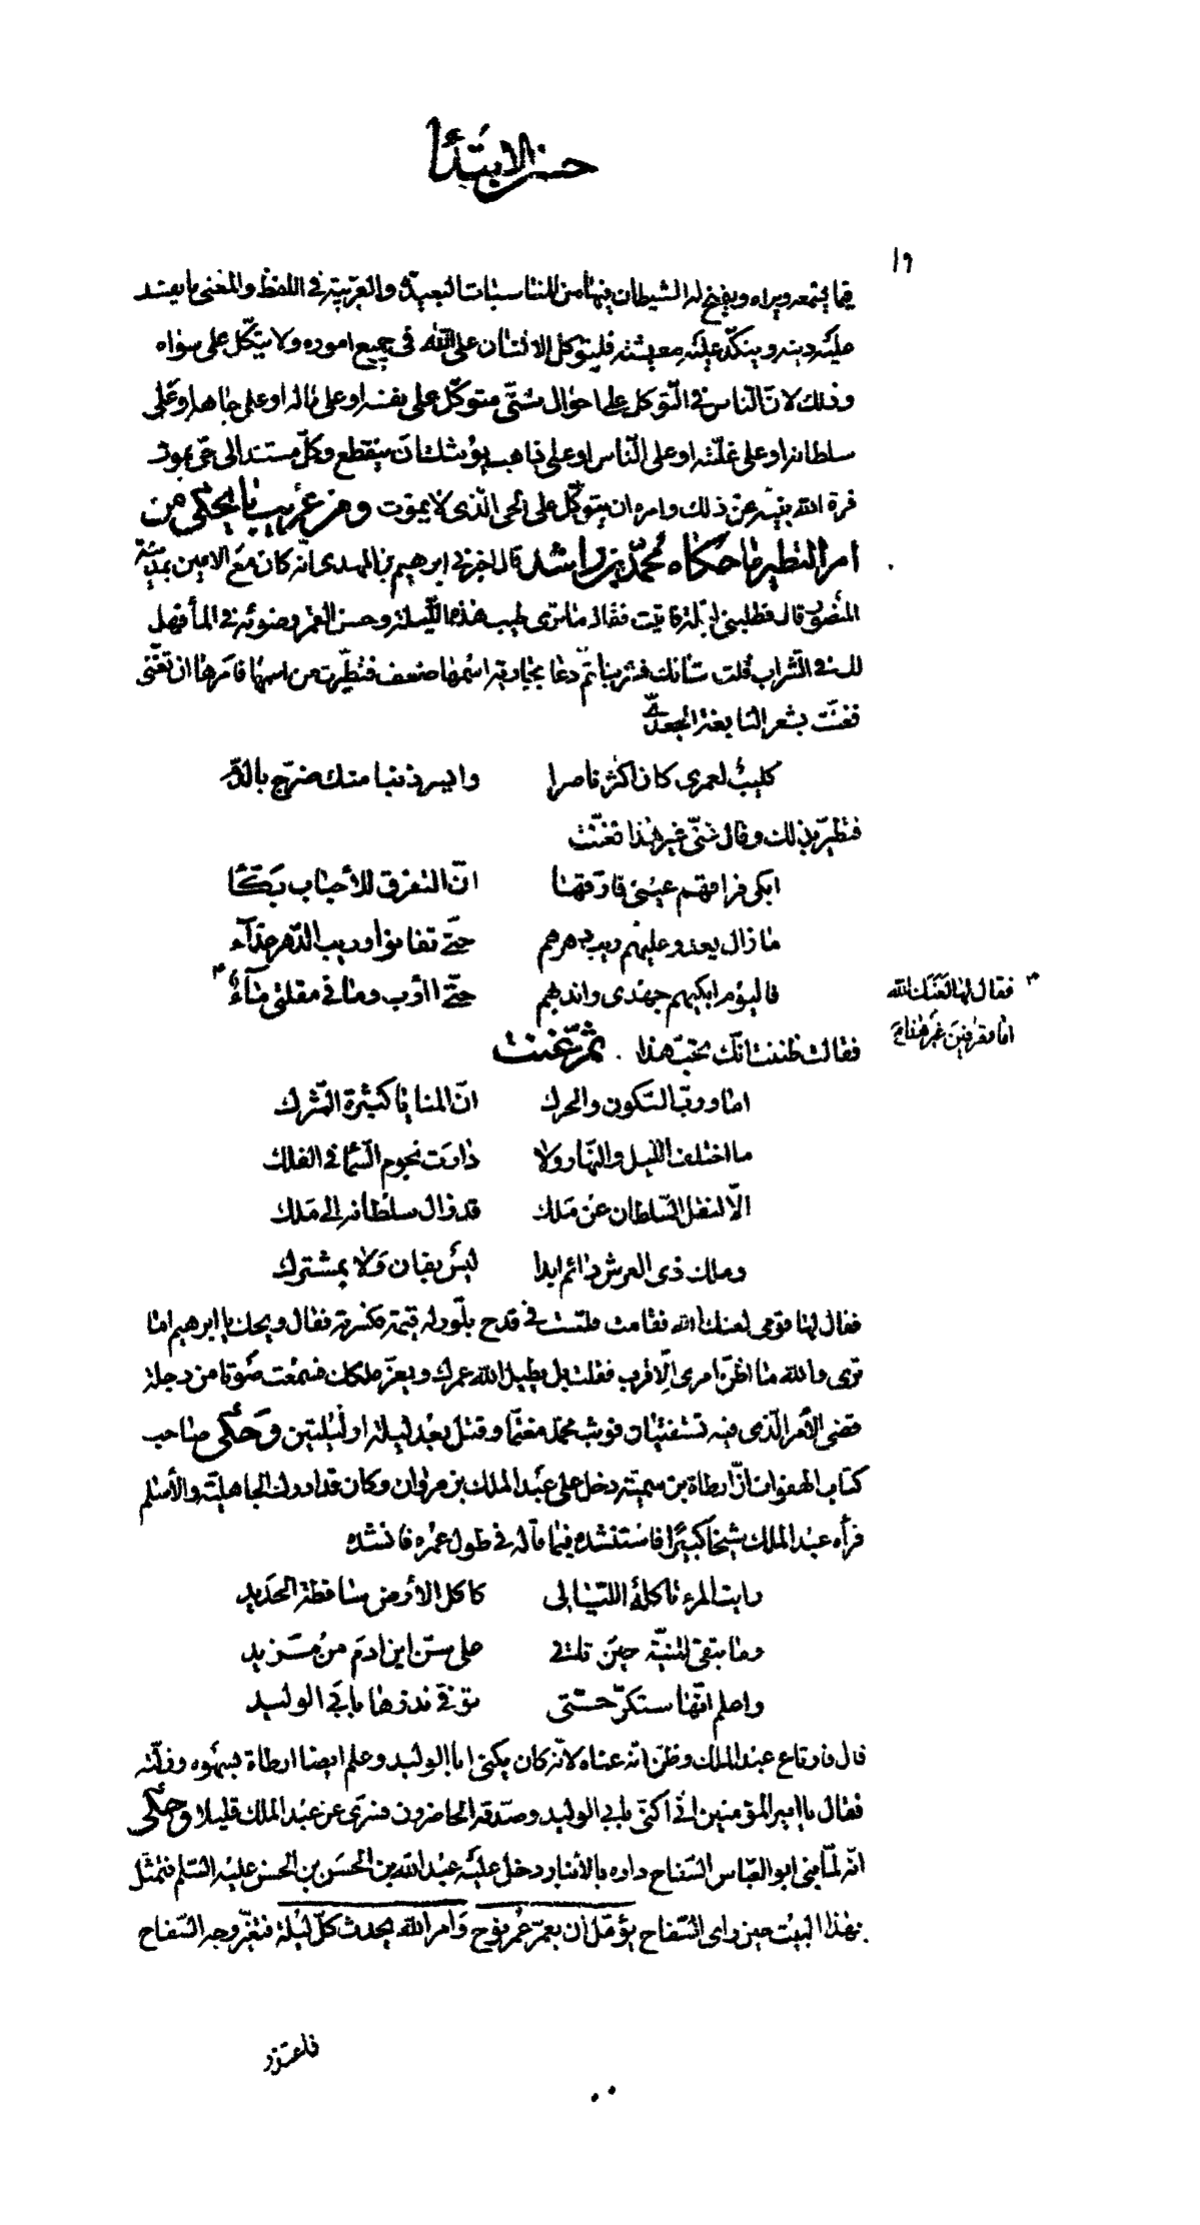 حسن الابتدأ
١٩
فيما يسمعه ويراه ويفتح له الشيطان فيها من المناسبات البعيدة والقريبة في اللفظ والمعنى ما يفسد
عليه دينه وينكد عليه معيشته فليتوكل الانسان على الله في جميع اموره ولا يتكل على سواه
وذلك لانّ الناس في التوكل على احوال شتّى متوكّل على نفسه او على ماله او على جاهه او على
سلطانه او على غلّته او على النّاس او على ذاهب يوشك ان ينقطع وكلّ مستند الى حيّ يموت
فنزه الله نبيّه عن ذلك وامره ان يتوكّل على الحي الّذي لا يموت ومن غريب ما يحكى من
امر التطير ما حكاه محمّد بن راشد قال اخبرني ابرهيم بن المهدى انّه كان مع الامين بمدينة
المنصور قال فطلبني ليلة فاتيت فقال ما ترى طيب هذه الليلة وحسن القمر وضوئه في الماء فهل
لك في الشراب قلت شانك فشربنا ثمّ دعا بجارية اسمها ضعف فتطيّرت من اسمها فامرها ان تغنّى
فغنّت بشعر النابغة الجعدىّ
كليب لعمرى كان اكثر ناصرا وايسر ذنبا منك ضرّج بالدّم
فتطيّر بذلك وقال غنّى غير هذا فغنّت
ابكى فراقهم عينى فارّقها انّ التفرق للأحباب بكّاء
ما زال يعدو عليهم ريب دهرهم حتّى تفانوا وريب الدّهر عدّآء
فاليوم ابكيهم جهدى واندبهم حتّى اأوب وما في مقلتى مآء
فقال لها لعنك الله
اما تعرفين غير هذا
فقالت ظننت انّك تحبّ هذا . ثم غنت
اما وربّ السّكون والحرك انّ المنايا كثيرة الشّرك
ما اختلف الليل والنهار ولا دارت نجوم السّما في الفلك
الّا لنقل السّلطان عن ملك قد زال سلطانه الى ملك
وملك ذى العرش دائم ابدا ليس بفان ولا بمشترك
فقال لها قومى لعنك الله فقامت فعثرت في قدح بلّور له قيمة فكسرته فقال ويحك يا ابرهيم اما
ترى والله ما اظنّ امرى الّا قرب فقلت بل يطيل الله عمرك ويعزّ ملكك فسمعت صوتا من دجلة
قضى الأمر الّذى فيه تستفتيان فوثب محمّد مغتمّا وقتل بعد ليلة او ليلتين وحكى صاحب
كتاب الهفوات انّ ارطاة بن سميّة دخل على عبد الملك بن مروان وكان قد ادرك الجاهليّة والأسلم
فرأه عبد الملك شيخا كبيرا فاستنشده فيما قاله في طول عمره فانشده
رايت المرء تاكله اللّيالى كاكل الأرض ساقطة الحديد
وما تبقى المنيّة حين تاتى على سنّ ابن ادم من مزيد
واعلم انّها ستكرّ حتّى توفّى نذرها بابى الوليد
قال فارتاع عبد الملك وظنّ انّه عناه لانّه كان يكنى ابا الوليد وعلم ايضا ارطاة بسهوه وزلّته
فقال يا امير المؤمنين انّى اكنّى بابى الوليد وصدّقه الحاضرون فسرّى عن عبد الملك قليلا وحكى
انّه لمّا بنى ابو العبّاس السّفاح داره بالأنبار دخل عليه عبد الله بن الحسن بن الحسن عليه السّلم فتمثّل
بهذا البيت حين راى السّفاح يؤمّل أن يعمّر عمر نوح وامر الله يحدث كلّ ليلة فتغيّر وجه السّفاح
فاعتذر